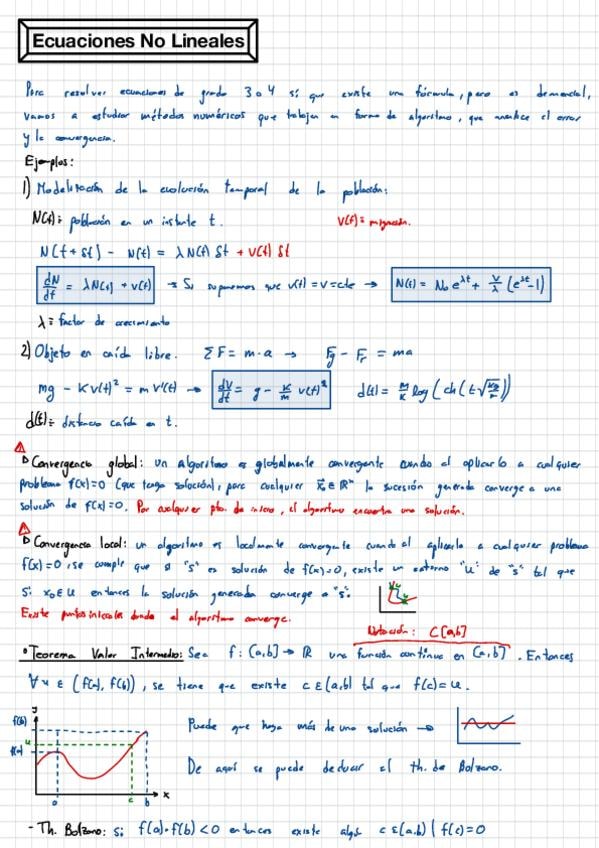 Ecuaciones No Lineales
Para resolver ecuaciones de grado 3 o 4 sí que existe una fórmula, pero es demencial,
vamos a estudiar métodos numéricos que trabajen en forma de algoritmo, que analice el error
y la convergencia.
Ejemplos:
1) Modelización de la evolución temporal de la población:
N(t) ≡ población en un instante t. V(t) ≡ migración.
N(t + δt) - N(t) = λN(t) δt + V(t) δt
dN/dt = λN(t) + v(t) → Si suponemos que v(t) = v = cte → N(t) = N₀e^λt + v/λ (e^λt - 1)
λ ≡ factor de crecimiento
2) Objeto en caída libre. ΣF = m·a → Fg - Fr = ma
mg - Kv(t)² = m v'(t) → dV/dt = g - K/m v(t)² d(t) = m/K log(ch(t√(Kg/m)))
d(t) ≡ distancia caída en t.
Convergencia global: un algoritmo es globalmente convergente cuando al aplicarlo a cualquier
problema f(x)=0 (que tenga solución), para cualquier x₀ ∈ ℝⁿ la sucesión generada converge a una
solución de f(x)=0. Por cualquier pto. de inicio, el algoritmo encuentra una solución.
Convergencia local: un algoritmo es localmente convergente cuando al aplicarlo a cualquier problema
f(x)=0, se cumple que si "s" es solución de f(x)=0, existe un entorno "U" de "s" tal que
si x₀ ∈ U entonces la solución generada converge a "s".
Existe puntos iniciales donde el algoritmo converge.
Notación: C[a,b]
Teorema Valor Intermedio: Sea f: [a,b] → ℝ una función continua en [a,b]. Entonces
∀u ∈ (f(a), f(b)), se tiene que existe c ∈ (a,b) tal que f(c) = u.
y
f(b)
u
f(a)
a c b x
Puede que haya más de una solución →
De aquí se puede deducir el th. de Bolzano.
- Th. Bolzano: si f(a)·f(b) < 0 entonces existe algún c ∈ (a,b) | f(c) = 0